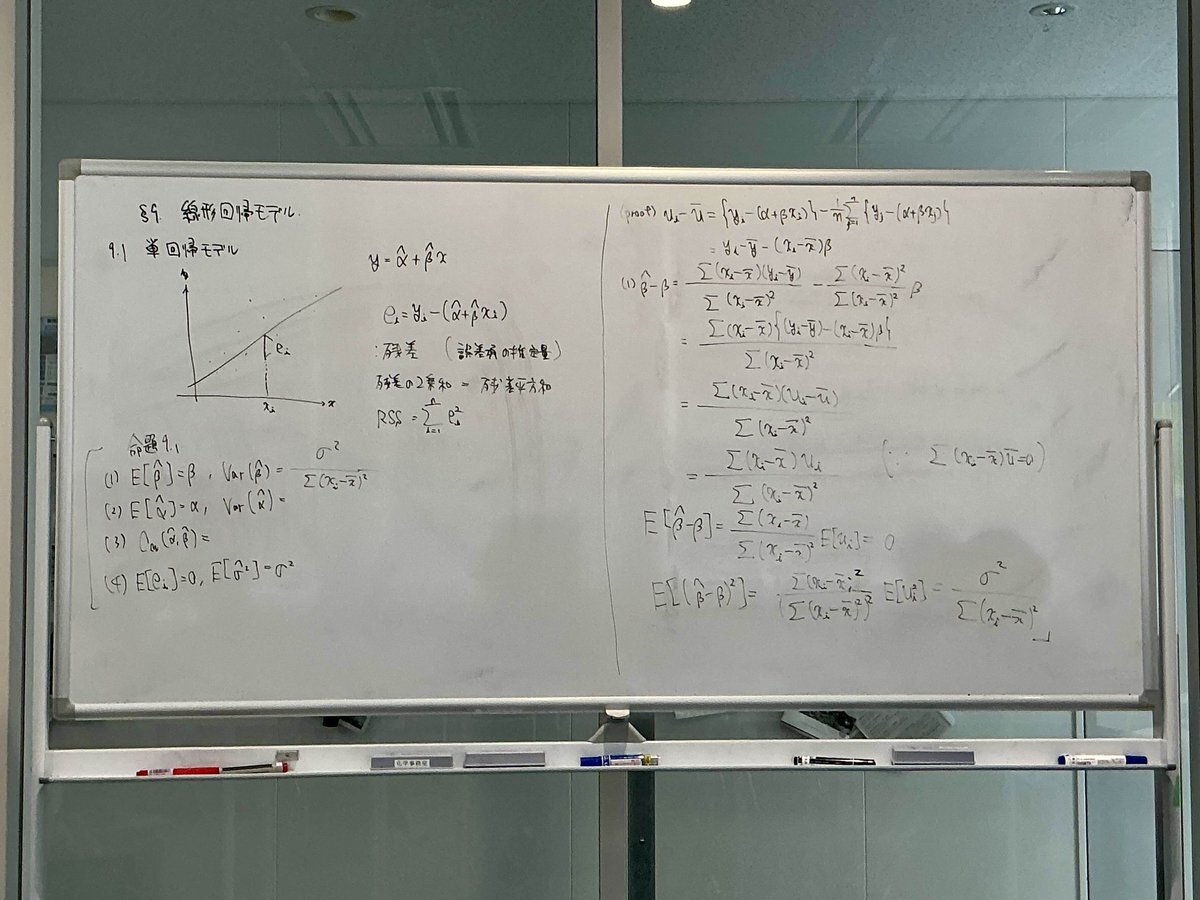 §9. 線形回帰モデル.
9.1 単回帰モデル
y
e_i
x_i
x
y = α̂ + β̂x
e_i = y_i − (α̂ + β̂x_i)
: 残差 (誤差項の推定量)
残差の2乗和 = 残差平方和
RSS = Σ_{i=1}^n e_i^2
命題9.1
(1) E[β̂] = β , Var(β̂) = σ^2 / Σ(x_i − x̄)^2
(2) E[α̂] = α, Var(α̂) =
(3) Cov(α̂, β̂) =
(4) E[e_i] = 0, E[σ̂^2] = σ^2
(proof) u_i − ū = {y_i − (α + βx_i)} − 1/n Σ_{j=1}^n {y_j − (α + βx_j)}
= y_i − ȳ − (x_i − x̄)β
(1) β̂ − β = Σ(x_i − x̄)(y_i − ȳ) / Σ(x_i − x̄)^2 − Σ(x_i − x̄)^2 / Σ(x_i − x̄)^2 β
= Σ(x_i − x̄){(y_i − ȳ) − (x_i − x̄)β} / Σ(x_i − x̄)^2
= Σ(x_i − x̄)(u_i − ū) / Σ(x_i − x̄)^2
= Σ(x_i − x̄)u_i / Σ(x_i − x̄)^2 (∵ Σ(x_i − x̄)ū = 0)
E[β̂ − β] = Σ(x_i − x̄) / Σ(x_i − x̄)^2 E[u_i] = 0
E[(β̂ − β)^2] = Σ(x_i − x̄)^2 / (Σ(x_i − x̄)^2)^2 E[u_i^2] = σ^2 / Σ(x_i − x̄)^2 」
化学事務室